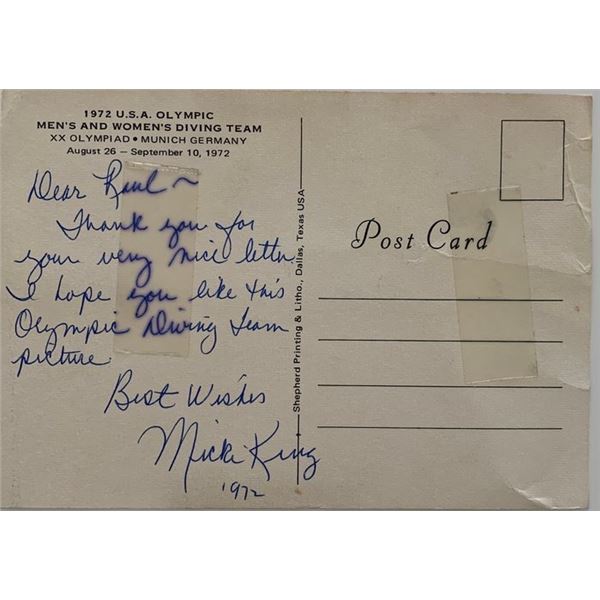 1972 U.S.A. OLYMPIC
MEN'S AND WOMEN'S DIVING TEAM
XX OLYMPIAD • MUNICH GERMANY
August 26 — September 10, 1972
Dear Raul ~
Thank you for
your very nice letter.
I hope you like this
Olympic Diving Team
picture
Best Wishes
Micki King
1972
Shepherd Printing & Litho., Dallas, Texas USA
Post Card